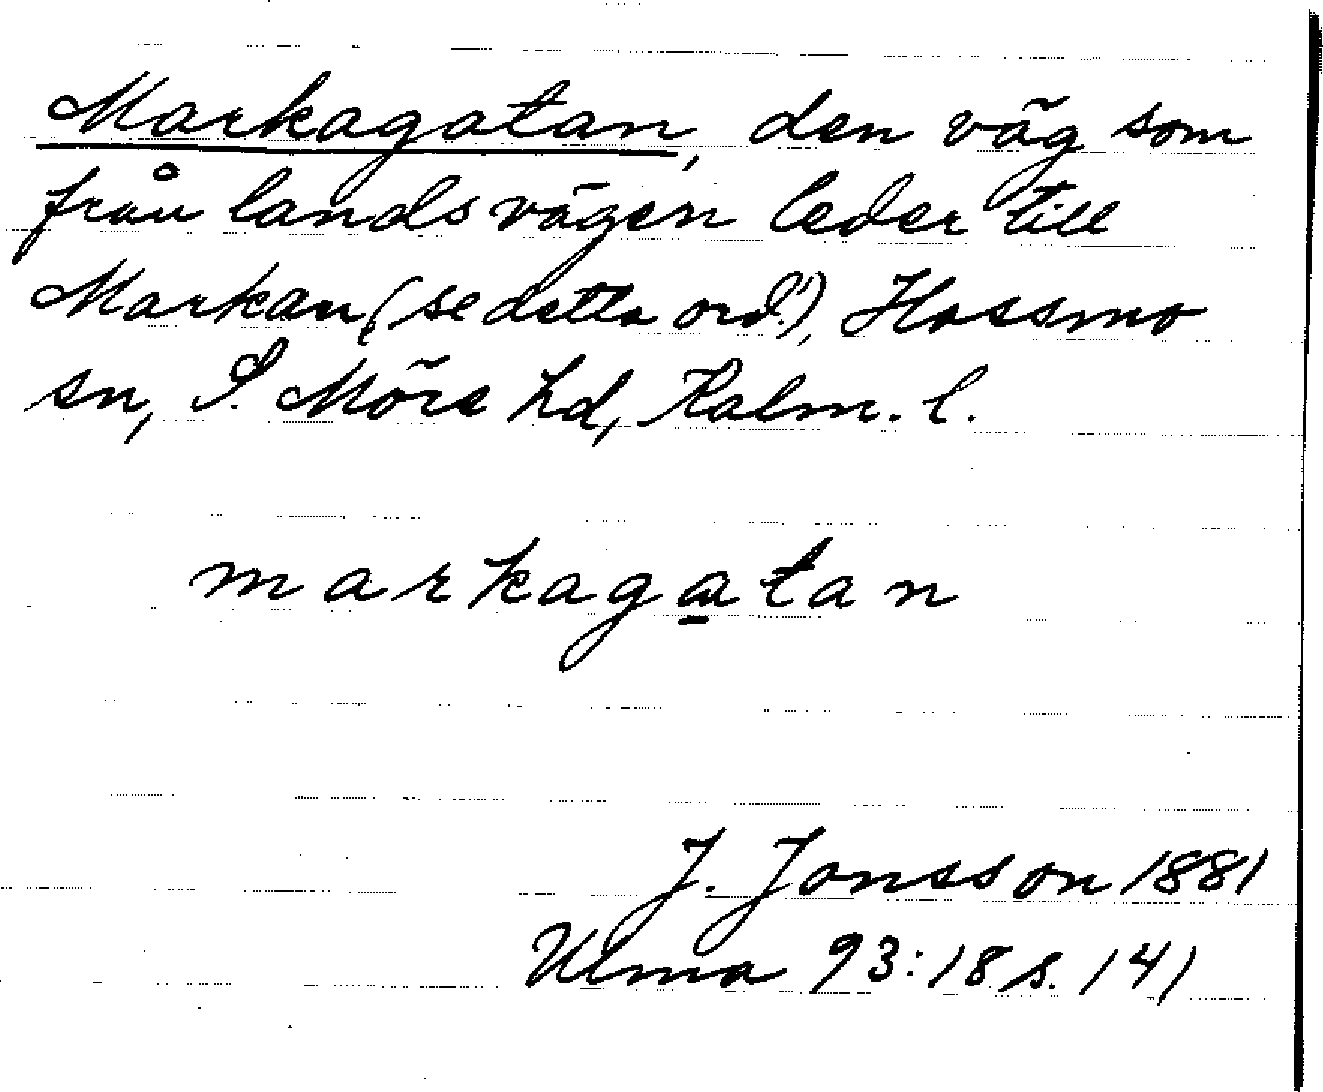 Markagatan, den väg som
från landsvägen leder till
Markan (se detta ord!), Hossmo
sn, S. Möre hd, Kalm. l.
markagatan
J. Jonsson 1881
Ulma 93:18 s. 141